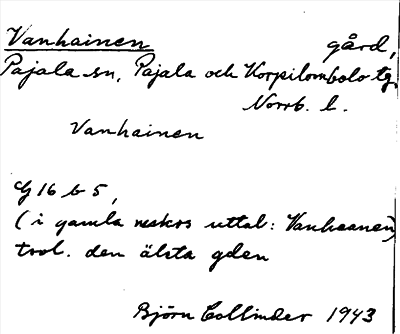 Vanhainen gård,
Pajala sn, Pajala och Korpilombolo tg.
Norrb. l.
Vanhainen
G 16 b 5,
(i gamla neskos uttal: Vanhaanen)
trol. den älsta gden
Björn Collinder 1943